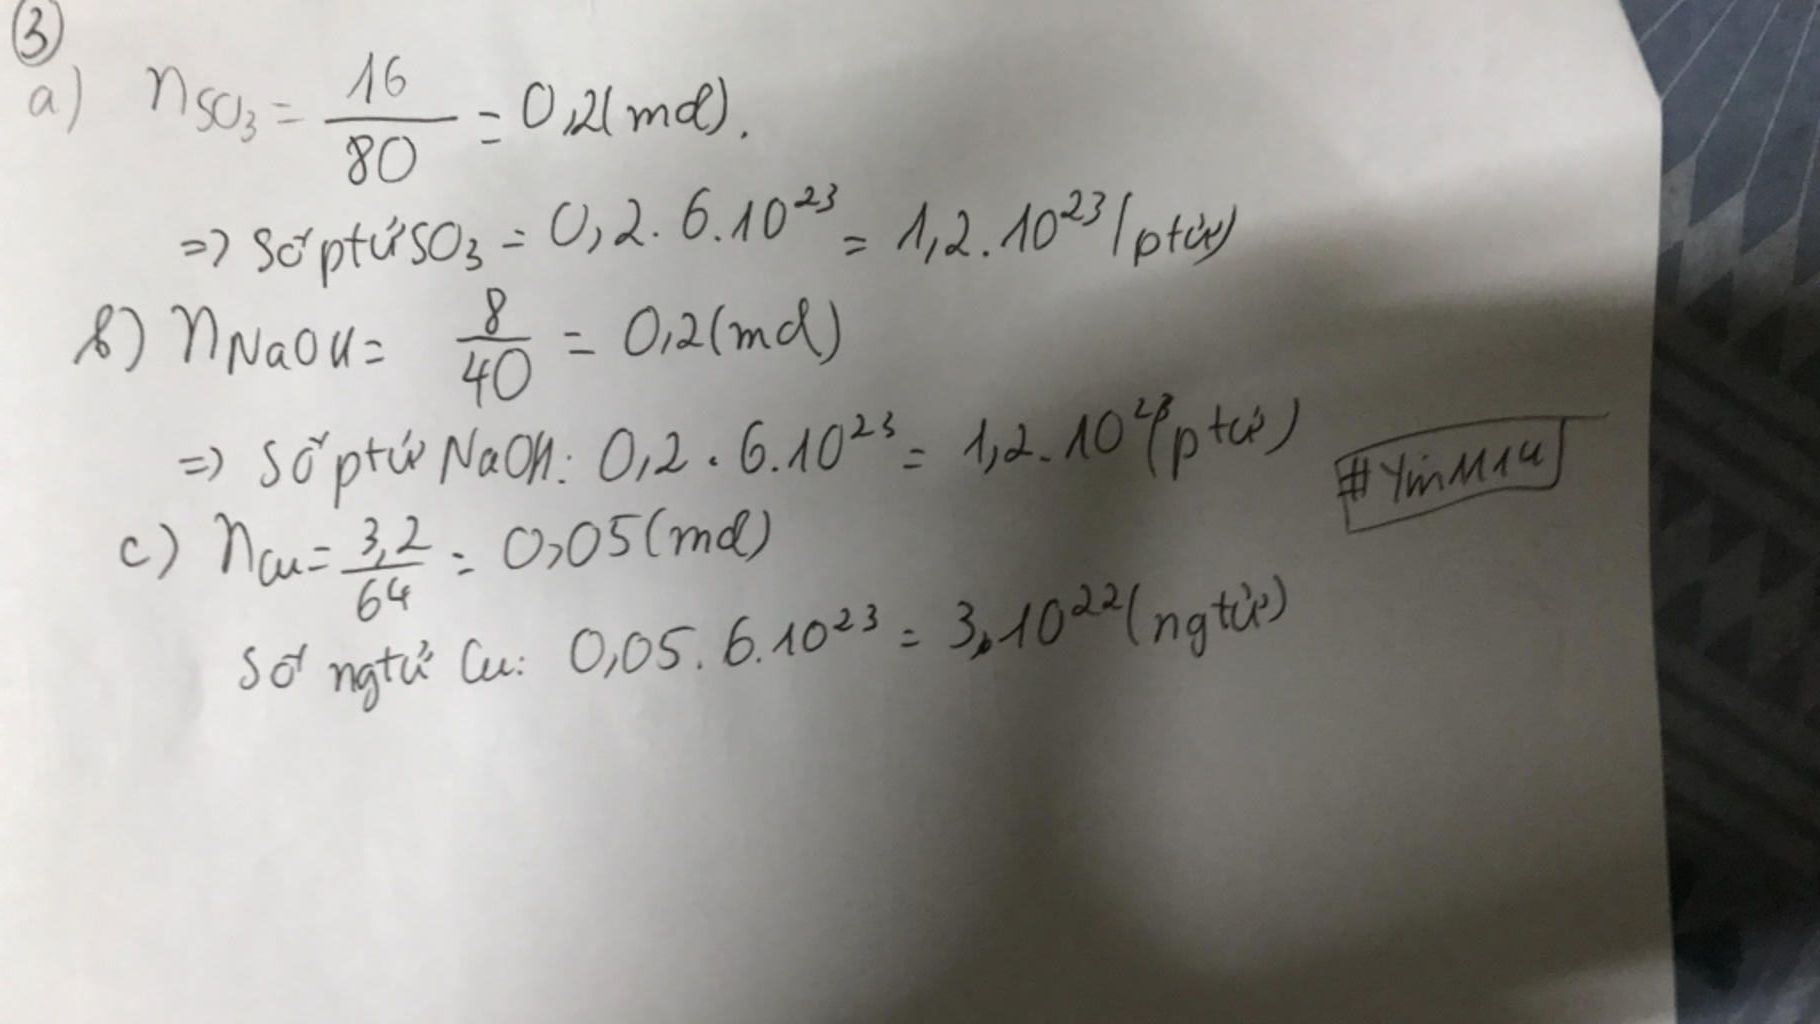 ③
a) nSO₃ = 16/80 = 0,2 (mol).
=> Số ptử SO₃ = 0,2 . 6.10²³ = 1,2.10²³ (ptử)
b) nNaOH = 8/40 = 0,2 (mol)
=> Số ptử NaOH: 0,2 . 6.10²³ = 1,2.10²³ (ptử)
c) nCu = 3,2/64 = 0,05 (mol)
Số ngtử Cu: 0,05 . 6.10²³ = 3.10²² (ngtử)